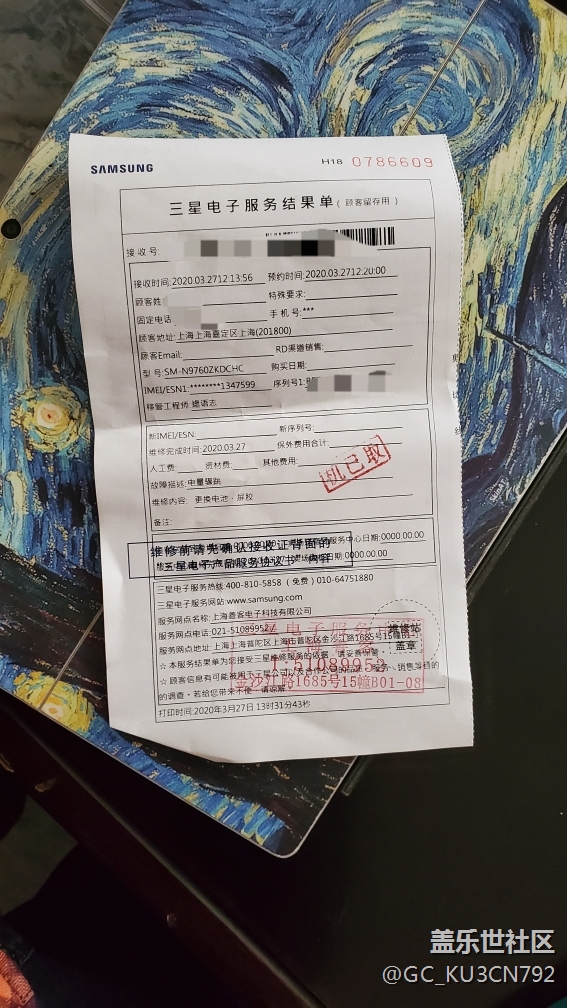 SAMSUNG
H18 0786609
三星电子服务结果单(顾客留存用)
接收号:
接收时间:2020.03.2712:13:56 预约时间:2020.03.2712:20:00
顾客姓: 特殊要求:
固定电话 手机号:***
顾客地址:上海上海嘉定区上海(201800)
顾客Email: RD渠道销售:
型号:SM-N9760ZKDCHC 购买日期:
IMEI/ESN1:********1347599 序列号1:R
移管工程师:
新IMEI/ESN: 新序列号:
维修完成时间:2020.03.27 保外费用合计:
人工费: 资材费: 其他费用:
机已取
故障描述:电量骤跳
维修内容: 更换电池·屏胶
备注:
服务中心日期:0000.00.00
维修前请先确认接收证背面的
三星电子产品服务协议书 内容
日期:0000.00.00
三星电子服务热线:400-810-5858 (免费) 010-64751880
三星电子服务网站:www.samsung.com
服务网点名称:上海善客电子科技有限公司
服务网点电话:021-51089952
服务网点地址:上海上海普陀区上海市普陀区金沙江路1685号15幢
维修站
盖章
电子服务
51089952
金沙江路1685号15幢B01-08
☆ 本服务结果单为您接受三星维修服务的依据,请妥善保管。
☆ 顾客信息有可能被用于三星公司以及合作公司的 服务、销售等目的
的调查,若给您带来不便,请谅解
打印时间:2020年3月27日 13时31分43秒
盖乐世社区
@GC_KU3CN792